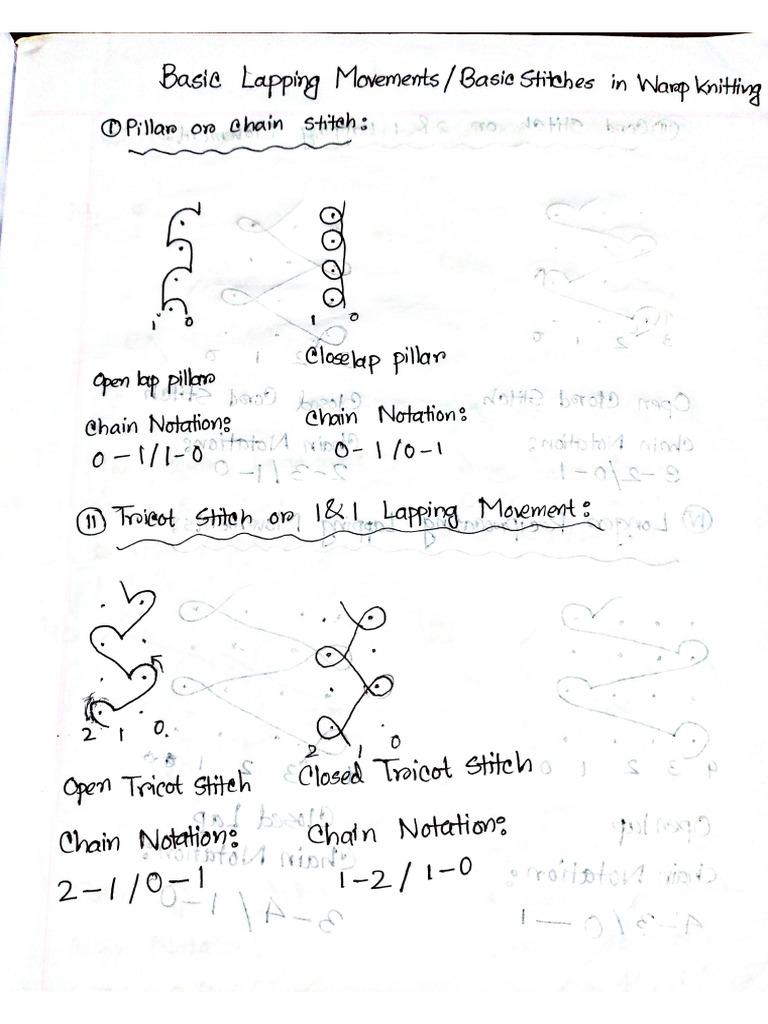 Basic Lapping Movements/Basic Stitches in Warp Knitting
① Pillar or Chain Stitch:
1 0
1 0
Open lap pillar
Closelap pillar
Chain Notation:
Chain Notation:
0-1/1-0
0-1/0-1
⑪ Tricot Stitch or 1&1 Lapping Movement:
2 1 0.
2 1 0
Open Tricot Stitch
Closed Tricot Stitch
Chain Notation:
Chain Notation:
2-1/0-1
1-2/1-0